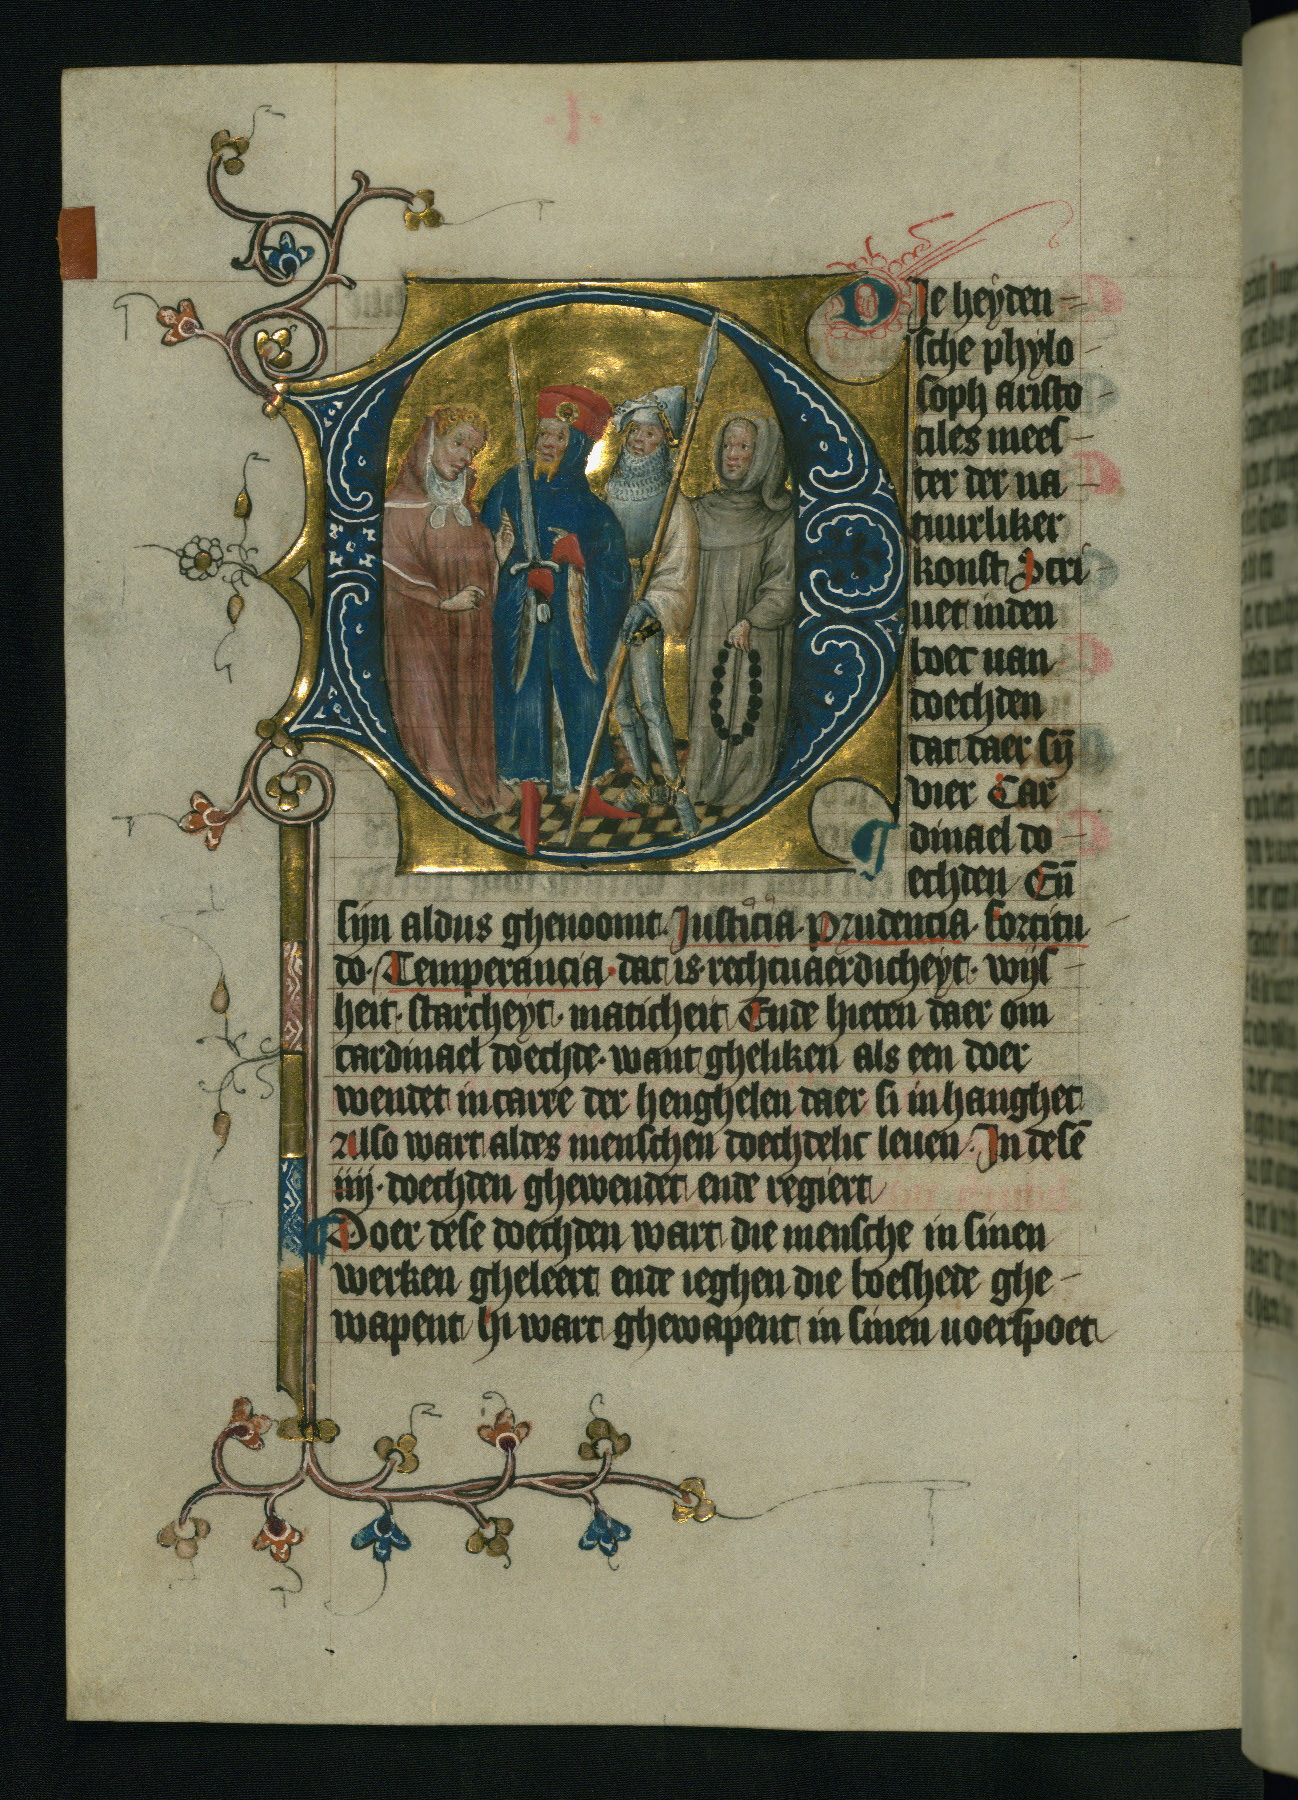 Die heyden
sche phylo
soph aristo
tiles mees
ter der na
tuurliker
konst Scri
uet inden
boec uan
doechden
dat daer syn̄
vier Car
dinael do
echden En̄
sijn aldus ghenoomt. Justicia. Prudencia. fortitu
do. Temperancia. dat is rechtuaerdicheyt. wijs
heit. starcheyt. maticheit Ende hieten daer om
cardinael doechde. want gheliken als een doer
wendet in carre der henghelen daer si in hanghet
Also wart aldes menschen doechdelic leuen. In desē
iiij. doechden ghewendet ende regiert
Doer dese doechden wart die mensche in sinen
werken gheleert ende ieghen die boeshede ghe
wapent hi wart ghewapent in sinen uoerspoet